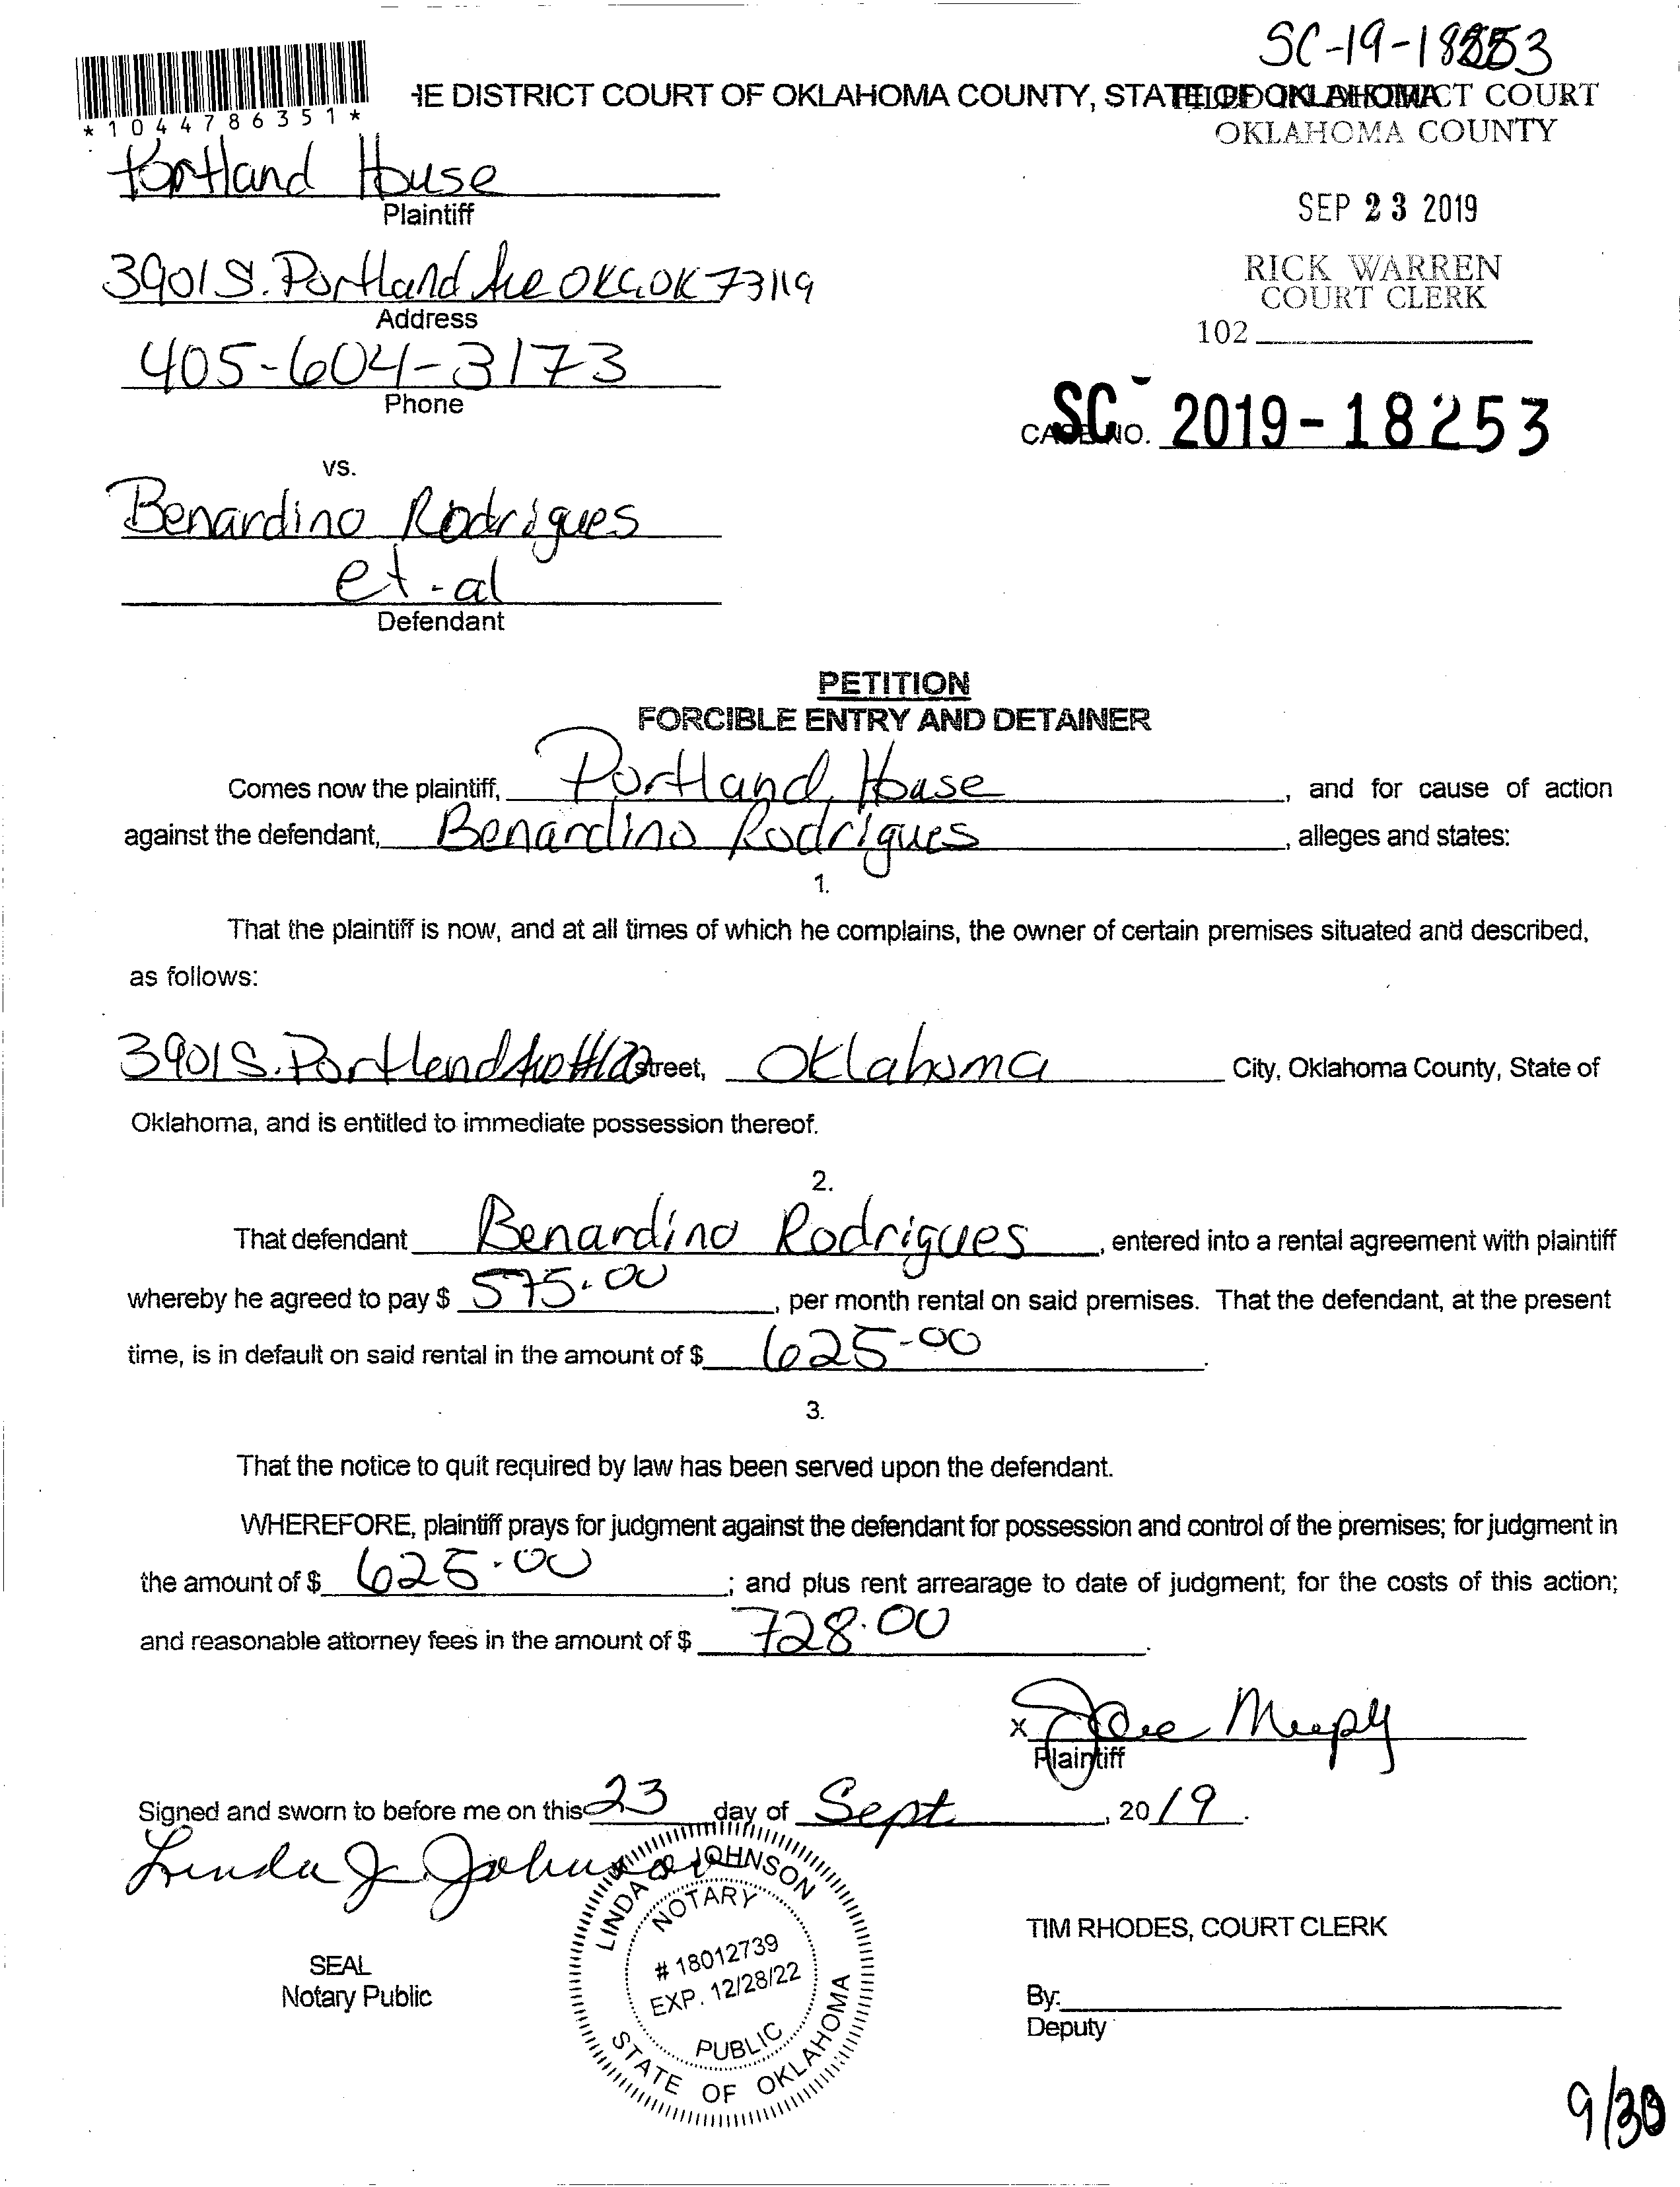 SC-19-18253
*1044786351*
HE DISTRICT COURT OF OKLAHOMA COUNTY, STATE OF OKLAHOMA
FILED IN DISTRICT COURT
OKLAHOMA COUNTY
Portland House
Plaintiff
SEP 23 2019
3901 S. Portland Ave OKC, OK 73119
Address
RICK WARREN
COURT CLERK
102
405-604-3173
Phone
CASE NO. SC- 2019-18253
vs.
Benardino Rodrigues
et-al
Defendant
PETITION
FORCIBLE ENTRY AND DETAINER
Comes now the plaintiff, Portland House, and for cause of action
against the defendant, Benardino Rodrigues, alleges and states:
1.
That the plaintiff is now, and at all times of which he complains, the owner of certain premises situated and described,
as follows:
3901 S. Portlend Street, Oklahoma City, Oklahoma County, State of
Oklahoma, and is entitled to immediate possession thereof.
2.
That defendant Benardino Rodrigues, entered into a rental agreement with plaintiff
whereby he agreed to pay $ 575.00, per month rental on said premises. That the defendant, at the present
time, is in default on said rental in the amount of $ 625-00.
3.
That the notice to quit required by law has been served upon the defendant.
WHEREFORE, plaintiff prays for judgment against the defendant for possession and control of the premises; for judgment in
the amount of $ 625.00; and plus rent arrearage to date of judgment; for the costs of this action;
and reasonable attorney fees in the amount of $ 728.00.
x
Plaintiff
Signed and sworn to before me on this 23 day of Sept, 2019.
Linda J. Johnson
LINDA JOHNSON
NOTARY
# 18012739
EXP. 12/28/22
PUBLIC
STATE OF OKLAHOMA
SEAL
Notary Public
TIM RHODES, COURT CLERK
By:
Deputy
9/30